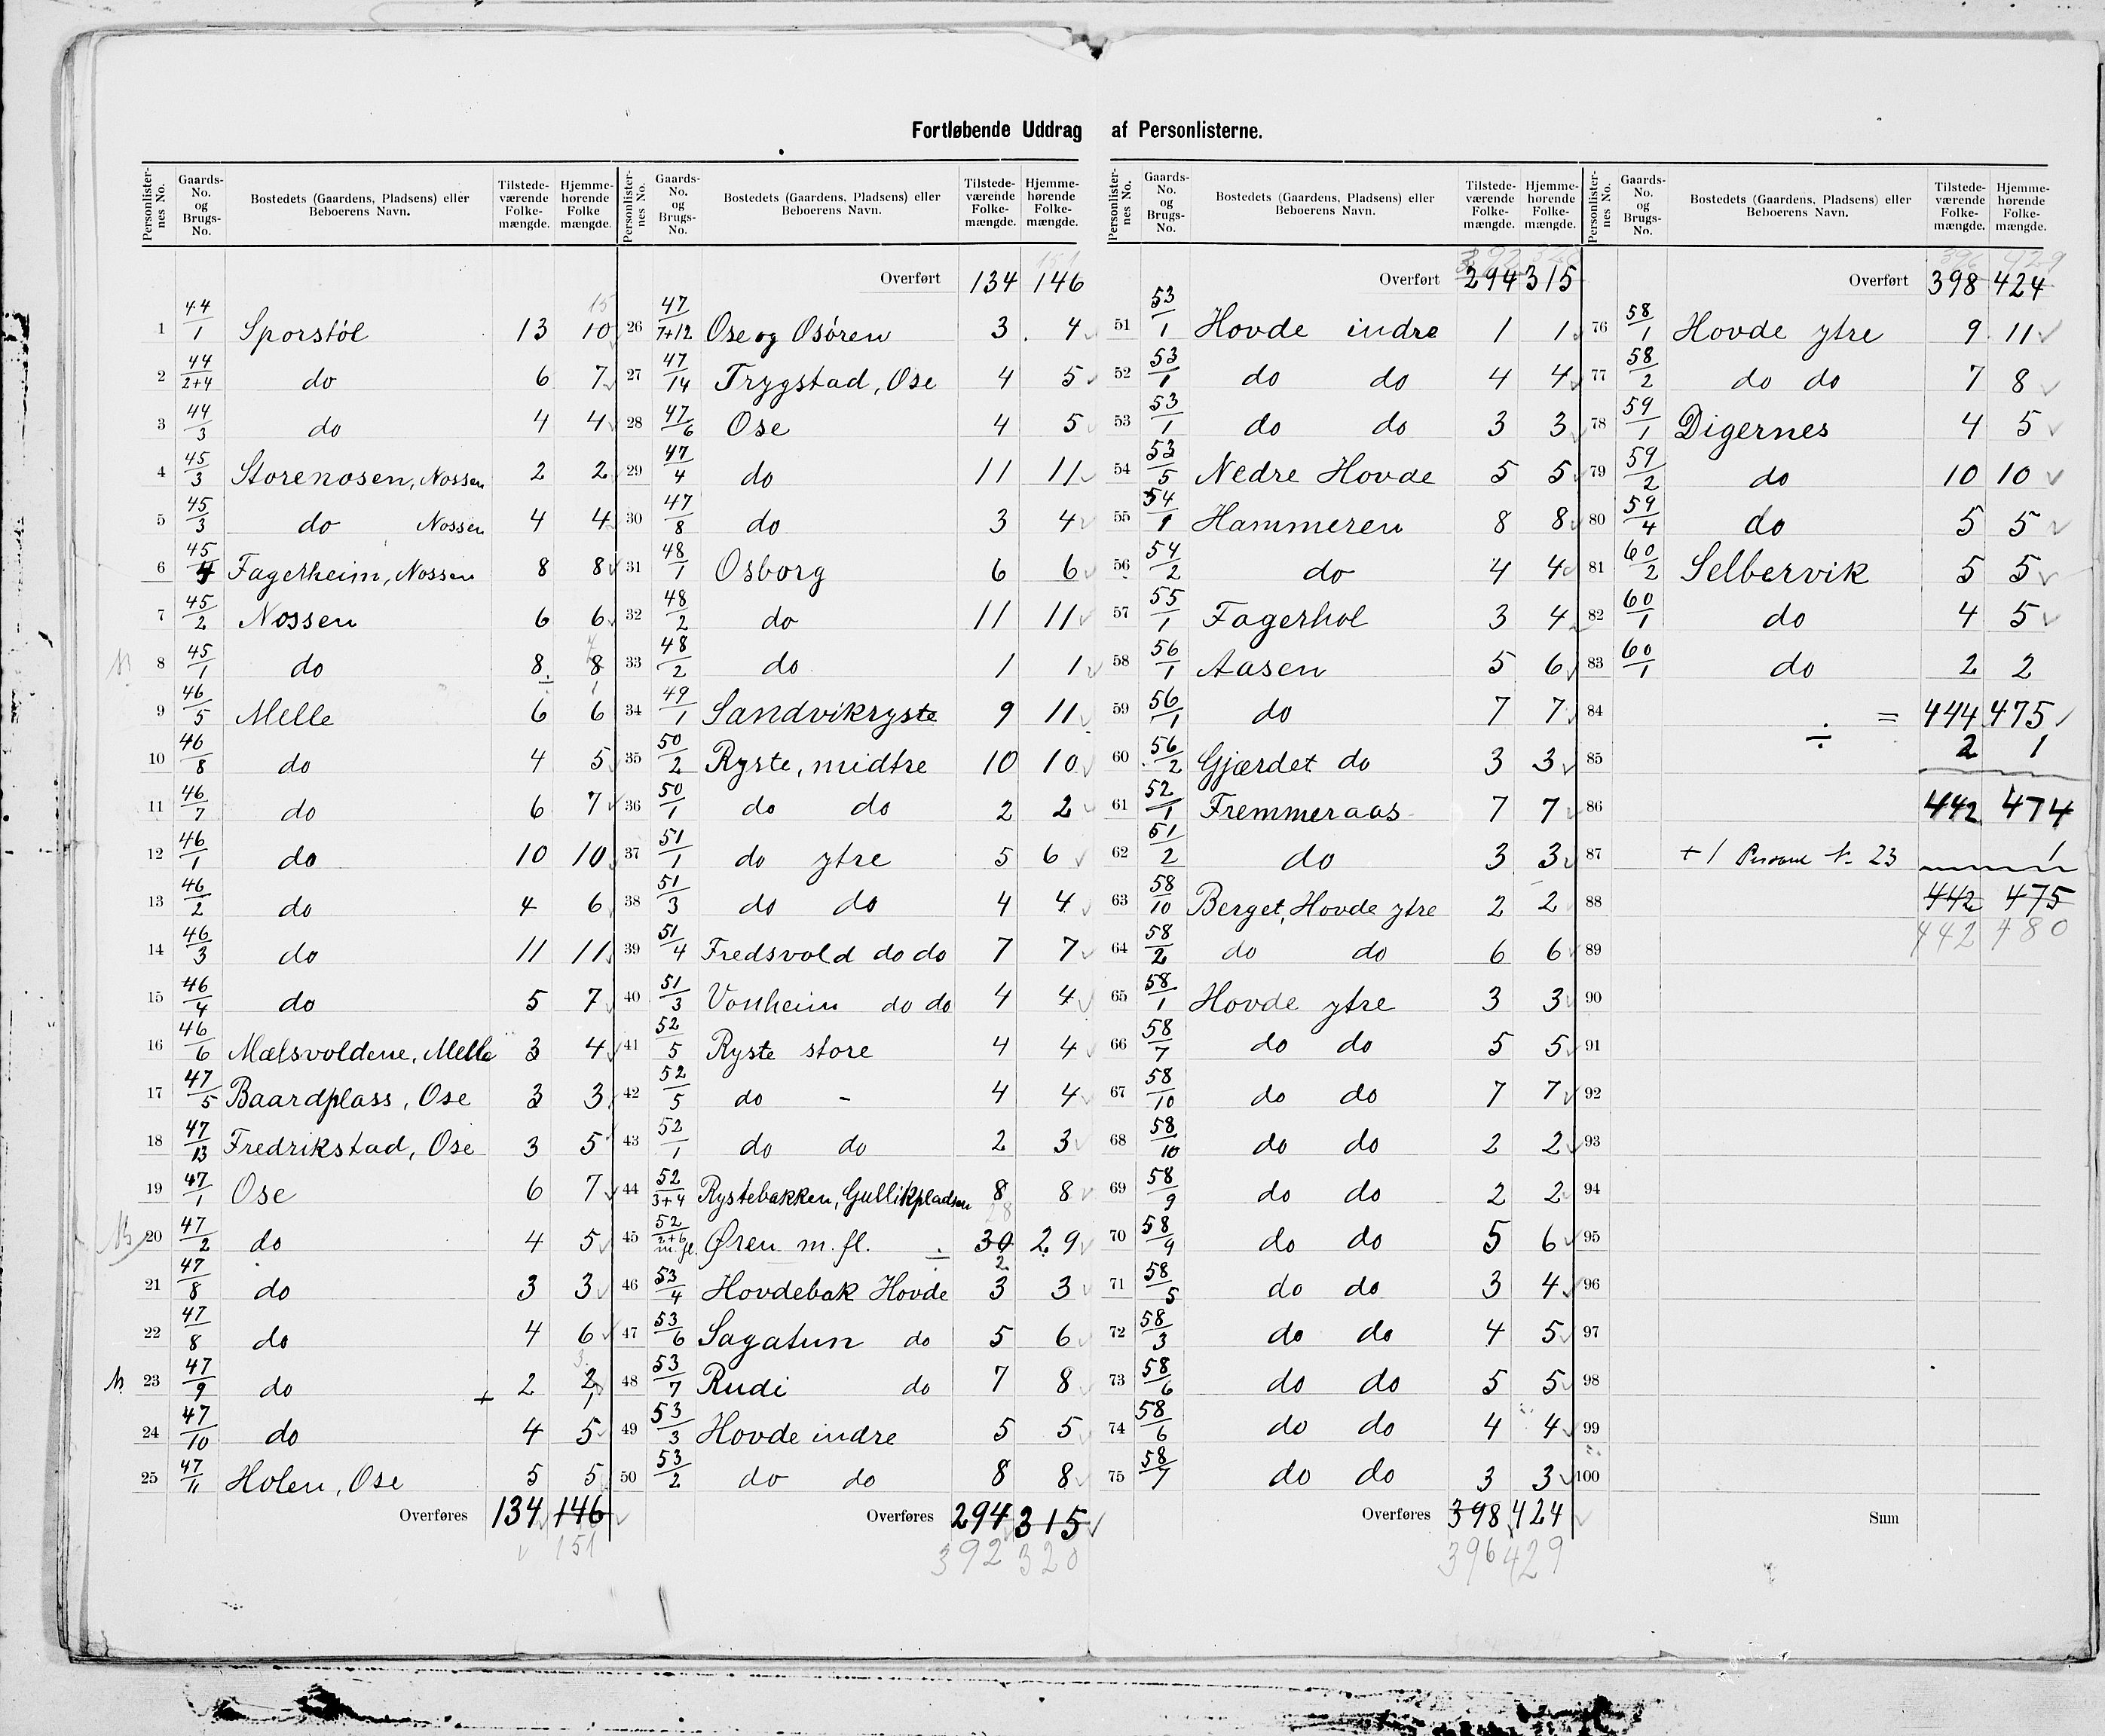 Fortløbende Uddrag af Personlisterne.
Personlisternes No. Gaards-No. og Brugs-No. Bostedets (Gaardens, Pladsens) eller Beboerens Navn. Tilstedeværende Folkemængde. Hjemmehørende Folkemængde.
1 44/1 Sporstöl 13 10 15
2 44/2+4 do 6 7
3 44/3 do 4 4
4 45/3 Storenosen, Nossen 2 2
5 45/3 do Nossen 4 4
6 45/4 Fagerheim, Nossen 8 8
7 45/2 Nossen 6 6
8 45/1 do 8 8 ÷ 1 7
9 46/5 Melle 6 6
10 46/8 do 4 5
11 46/7 do 6 7
12 46/1 do 10 10
13 46/2 do 4 6
14 46/3 do 11 11
15 46/4 do 5 7
16 46/6 Mælsvoldene, Melle 3 4
17 47/5 Baardplass, Ose 3 3
18 47/13 Fredrikstad, Ose 3 5
19 47/1 Ose 6 7
20 47/2 do 4 5
21 47/8 do 3 3
22 47/8 do 4 6
23 47/9 do + 2 2 1 3
24 47/10 do 4 5
25 47/11 Holen, Ose 5 5
Overføres 134 146
151
Personlisternes No. Gaards-No. og Brugs-No. Bostedets (Gaardens, Pladsens) eller Beboerens Navn. Tilstedeværende Folkemængde. Hjemmehørende Folkemængde.
151
Overført 134 146
26 47/7+12 Ose og Osören 3 4
27 47/14 Trygstad, Ose 4 5
28 47/6 Ose 4 5
29 47/4 do 11 11
30 47/8 do 3 4
31 48/1 Osborg 6 6
32 48/2 do 11 11
33 48/2 do 1 1
34 49/1 Sandvikryste 9 11
35 50/2 Ryste, midtre 10 10
36 50/1 do do 2 2
37 51/1 do ytre 5 6
38 51/3 do do 4 4
39 51/4 Fredsvold do do 7 7
40 51/3 Vonheim do do 4 4
41 52/5 Ryste store 4 4
42 52/5 do - 4 4
43 52/1 do do 2 3
44 52/3+4 Rystebakken, Gullikpladsen 8 8
28
45 52/2+6 m.fl. Øren m. fl. ÷ 30 29
2
46 53/4 Hovdebak Hovde 3 3
47 53/6 Sagatun do 5 6
48 53/7 Rudi do 7 8
49 53/3 Hovde indre 5 5
50 53/2 do do 8 8
Overføres 294 315
392 320
Personlisternes No. Gaards-No. og Brugs-No. Bostedets (Gaardens, Pladsens) eller Beboerens Navn. Tilstedeværende Folkemængde. Hjemmehørende Folkemængde.
392 320
Overført 294 315
51 53/1 Hovde indre 1 1
52 53/1 do do 4 4
53 53/1 do do 3 3
54 53/5 Nedre Hovde 5 5
55 54/1 Hammeren 8 8
56 54/2 do 4 4
57 55/1 Fagerhol 3 4
58 56/1 Aasen 5 6
59 56/1 do 7 7
60 56/2 Gjærdet do 3 3
61 52/1 Fremmeraas 7 7
62 51/2 do 3 3
63 58/10 Berget, Hovde ytre 2 2
64 58/2 do do 6 6
65 58/1 Hovde ytre 3 3
66 58/7 do do 5 5
67 58/10 do do 7 7
68 58/10 do do 2 2
69 58/9 do do 2 2
70 58/9 do do 5 6
71 58/5 do do 3 4
72 58/3 do do 4 5
73 58/6 do do 5 5
74 58/6 do do 4 4
75 58/7 do do 3 3
Overføres 398 424
396 429
Personlisternes No. Gaards-No. og Brugs-No. Bostedets (Gaardens, Pladsens) eller Beboerens Navn. Tilstedeværende Folkemængde. Hjemmehørende Folkemængde.
396 429
Overført 398 424
76 58/1 Hovde ytre 9 11
77 58/2 do do 7 8
78 59/1 Digernes 4 5
79 59/2 do 10 10
80 59/4 do 5 5
81 60/2 Selbervik 5 5
82 60/1 do 4 5
83 60/1 do 2 2
84 = 444 475
85 ÷ 2 1
86 442 474
87 +1 Person N. 23 1
88 442 475
89 442 480
90
91
92
93
94
95
96
97
98
99
100
Sum